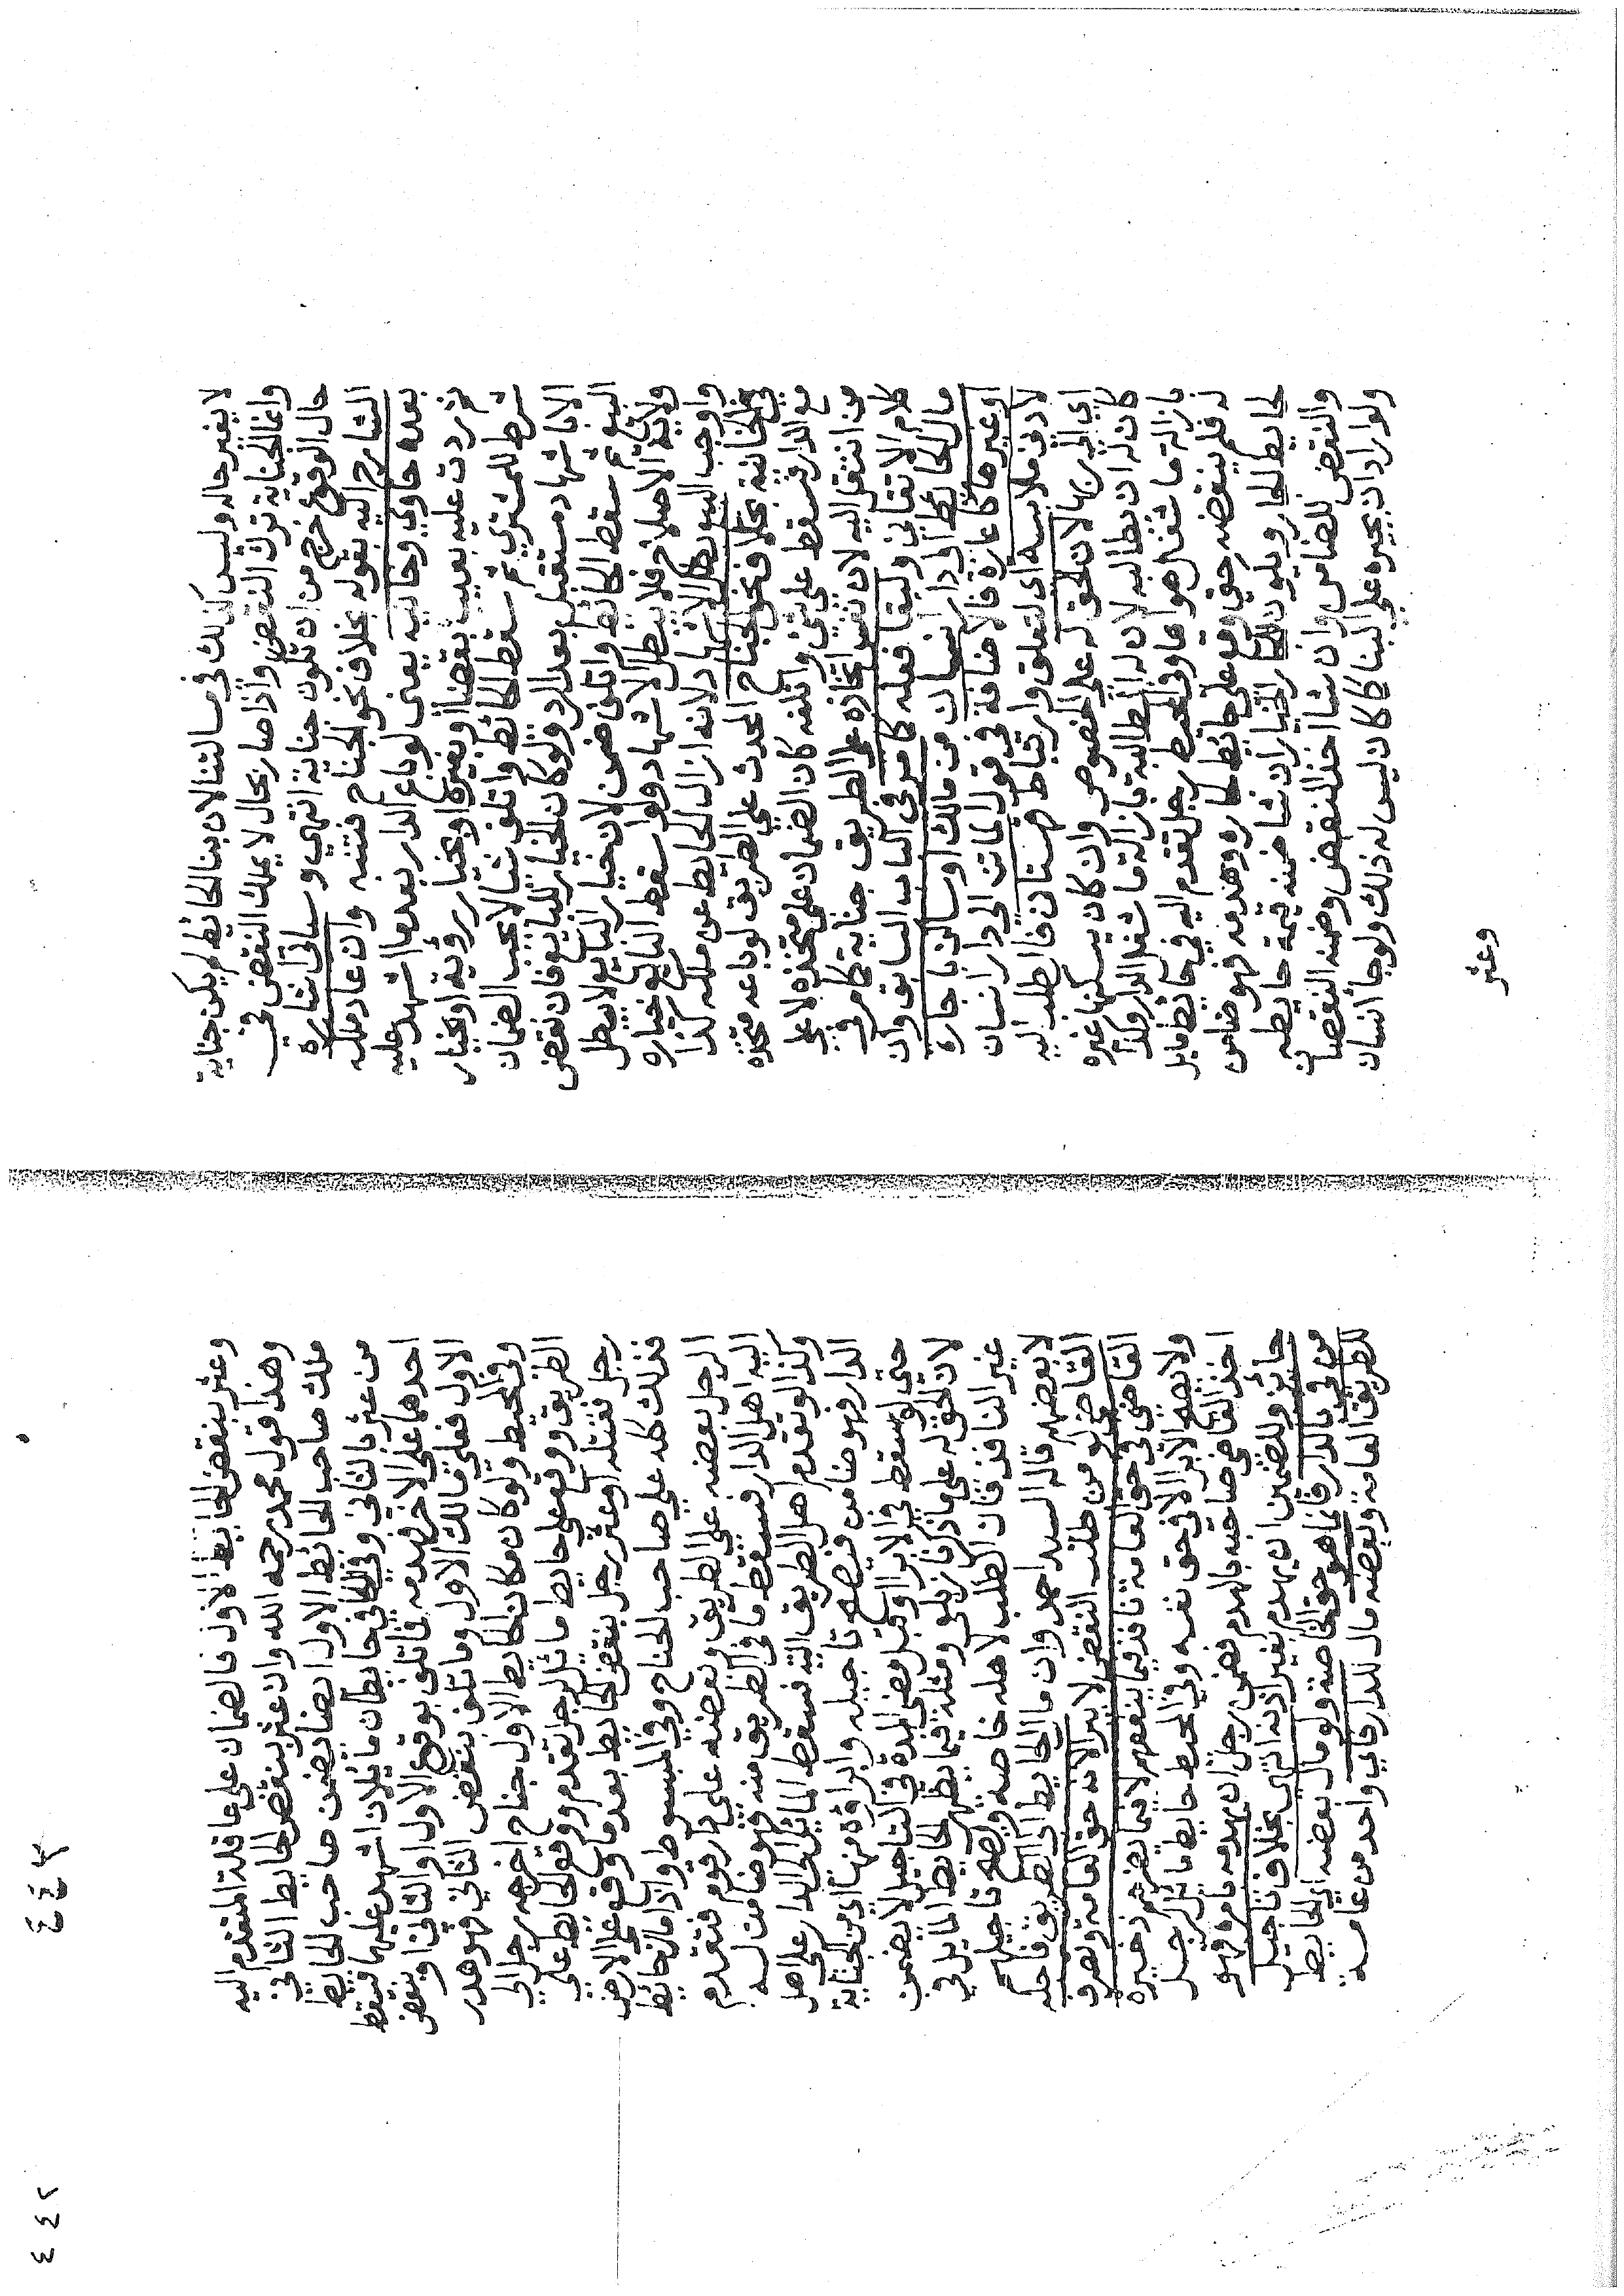 لا يغير حاله وليس كذلك في مسالتنا لان بنا الحائط لم يكن جناية
وانما الجناية ترك النقض واذا صار بحال لا يملك النقض في
حال الوقوع خرج من ان تكون جناية انتهي وسياتي اشارة
الشارح اليه بقوله بخلاف نحو الجناح فتنبه وان عاد ملكه
بعده حاوي وخانيه يعني لو باع الدار بعدما اشهد عليه
ثم ردت عليه بعيب بقضا او بغيره او بخيار رؤية او بخيار
شرط للمشتري ثم سقط الحائط واتلف شيا لا يجب الضمان
الا باشهاد مستقبل بعد الرد ولو كان الخيار للبايع فان نقض
البيع ثم سقط الحائط واتلف ضمن لان خيار البايع لا يبطل
ولاية الاصلاح فلا يبطل الاشهاد ولو اسقط البايع خياره
واوجب البيع بطل الاشهاد لانه ازال الحايط عن ملكه كذا
في الخانية بخلاف نحو الجناح المحدث علي الطريق لو باعه متخذه
مع الدار فسقط علي شئ واتلفه كان الضمان علي متخذه لا علي
من انتقل اليه لان نفس اتخاذه علي الطريق جناية كما مر في
كلام الاتقاني ولبقا فعله كما مر في الباب السابق وان
مال الحائط الي دار انسان من مالك او ساكن باجارة
او غيرها كاعارة فالاضافة في قول الماتن الي دار انسان
لادني ملابسة اي لتعلق وارتباط قهستاني فالطلب اليه
اي الي ربها لان الحق له علي الخصوص وان كان يسكنها غيره
كان له ان يطالبه لان له المطالبة بازالة ما شغل الدار وكذا
بازالة ما شغل هواها وفي المحيط رجل تقدم اليه في حائط مايل
له فلم ينقضه حتي وقع علي حائط جاره وهدمه فهو ضامن
لحايط الجار ويكون الجار بالخيار ان شا ضمنه قيمة حايطه
والنقض للضامن وان شا اخذ النقض وضمنه النقصان
ولو اراد ان يجبره علي البنا كما كان ليس له ذلك ولو جا انسان
وعثر
وعثر بنقض الحايط الاول فالضمان علي عاقلة المتقدم اليه
وهذا قول محمد رحمه الله وان عثر بنقض الحايط الثاني
ملك صاحب الحائط الاول ايضا يضمن صاحب الحايط
من عثر بالثاني وفي الكافي حايطان مايلان اشهد عليهما فسقط
احدهما علي الاخر فهدمه فما تلف بوقوع الاول او الثاني او بنقض
الاول فعلي مالك الاول وما تلف بنقض الثاني فهو هدر
وفي المحيط ولو كان مكان الحايط الاول جناح اخرجه رجل الي
الطريق ووقع علي حايط مائل لرجل تقدم ووقع الحايط علي
رجل فقتله او عثر رجل بنقض الحايط بعد ما وقع علي الارض
فذلك كله علي صاحب الجناح وفي المبسوط واذا مال حائط
الرجل بعضه علي الطريق وبعضه علي دار قوم فتقدم
اليه اهل الدار فسقط ما في الطريق منه فهو ضامن له
وكذا لو تقدم اهل الطريق اليه فسقط المائل الي الدار علي اهل
الدار فهو ضامن فيصح تاجيله وابراؤه منها اي من الجناية
حتي لو سقط في الابرا او قبل مضي المدة في التاجيل لا يضمن
لان الحق له علي ما ذكر الزيلعي ومثله فيما يظهر الحايط المايل في
غير النافذ فان الطلب لاهله خاصة ويصح تاجيلهم
لا بعضهم قاله السيد احمد وان مال الحايط الي الطريق فاجله
القاضي او من طلب النقض لا يبرا لانه حق العامة وتصرف
القاضي في حق العامة نافذ فيما ينفعهم لا فيما يضرهم ذخيرة
ولا يصح الابرا الا في حق نفسه وفي المحيط حايط مائل لرجل
اخذ القاضي صاحبه بالهدم فضمن رجل ان يهدمه بامره فهو
جائز وللضمين ان يهدم بغير اذنه انتهي بخلاف تاجيل
من في بالدار فانما هو حق الخاصة ولو مال بعضه اي الحايط
للطريق العامة وبعضه مال للدار فاي واحد من عامه
٤٤٣
٤٤٢